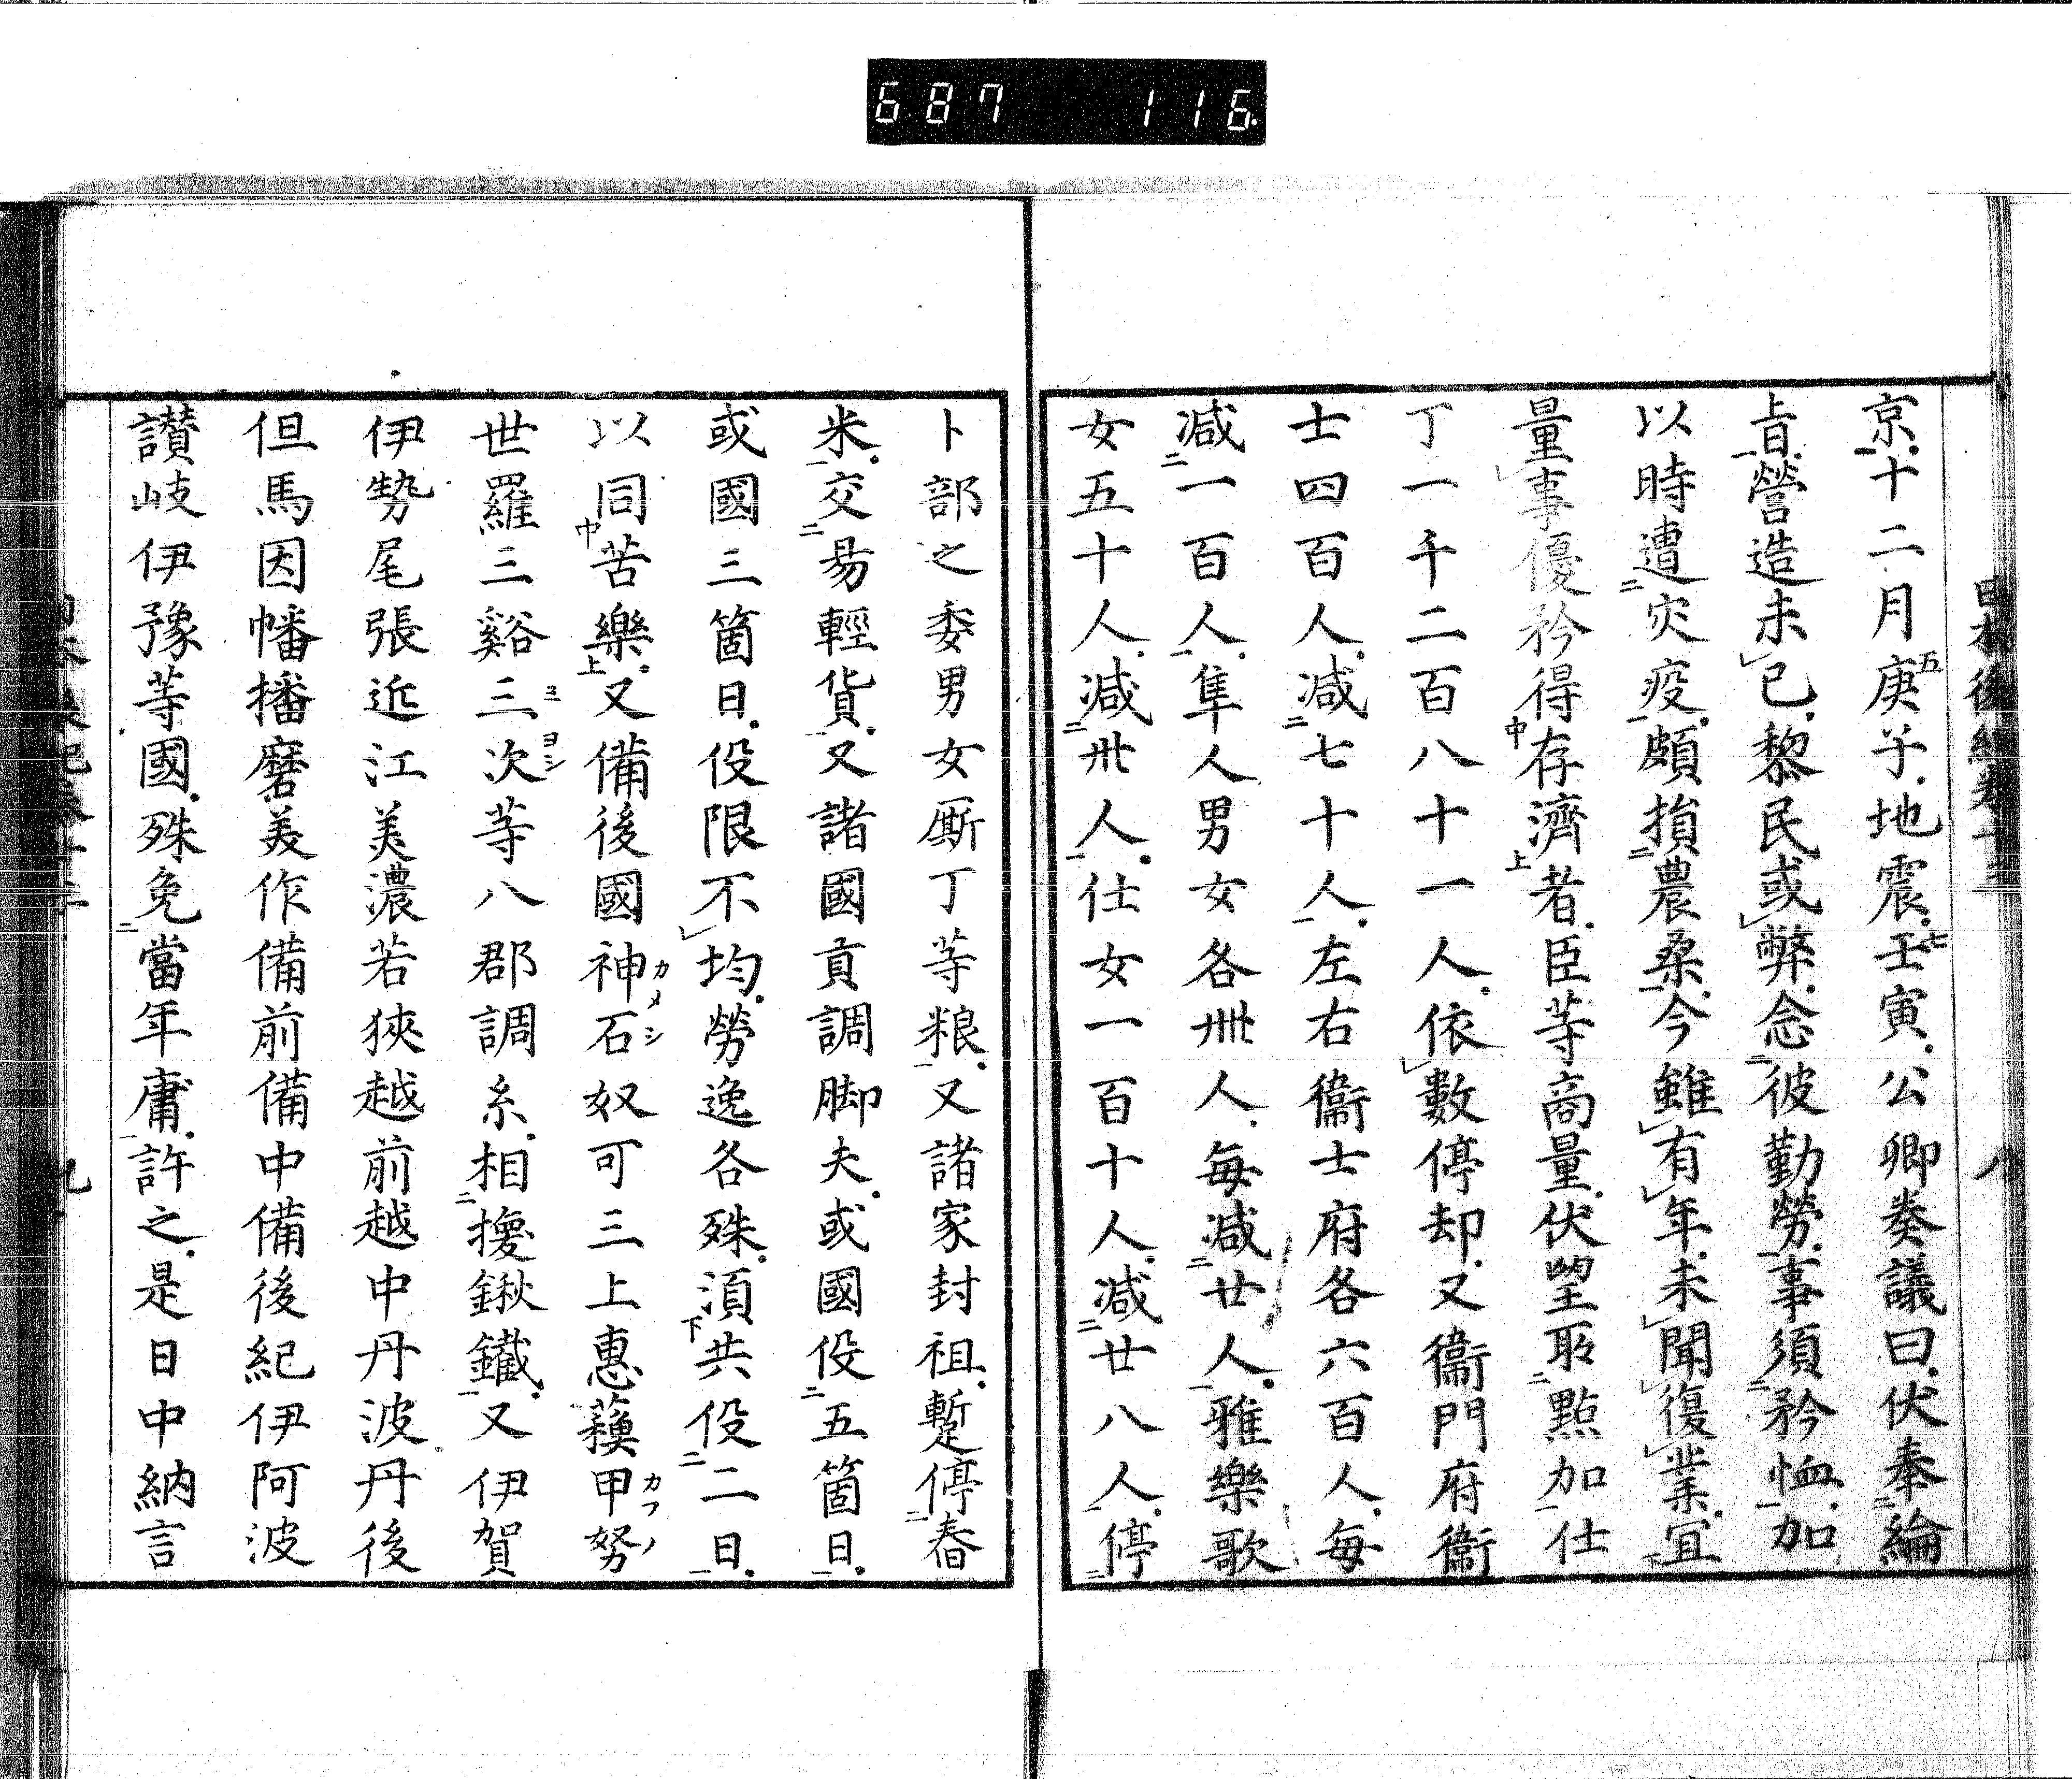 687 116
京十二月庚子地震壬寅公卿奏議曰伏奉綸
旨營造未已黎民或弊念彼勤勞事須矜恤加
以時遭災疫頗損農桑今雖有年未聞復業宜
量事優矜得存濟者臣等商量伏望所點加仕
丁一千二百八十一人依數停却又衞門府衞
士四百人減七十人左右衞士府各六百人每
減一百人隼人男女各卌人每減廿人雅樂歌
女五十人減卅人仕女一百十人減廿八人停
卜部之委男女厮丁等粮又諸家封祖蹔停舂
米交易輕貨又諸國貢調脚夫或國役五箇日
或國三箇日役限不均勞逸各殊須共役二日
以同苦樂又備後國神石奴可三上惠蘓甲努
世羅三谿三次等八郡調糸相換鍬鐵又伊賀
伊勢尾張近江美濃若狹越前越中丹波丹後
但馬因幡播磨美作備前備中備後紀伊阿波
讃岐伊豫等國殊免當年庸許之是日中納言